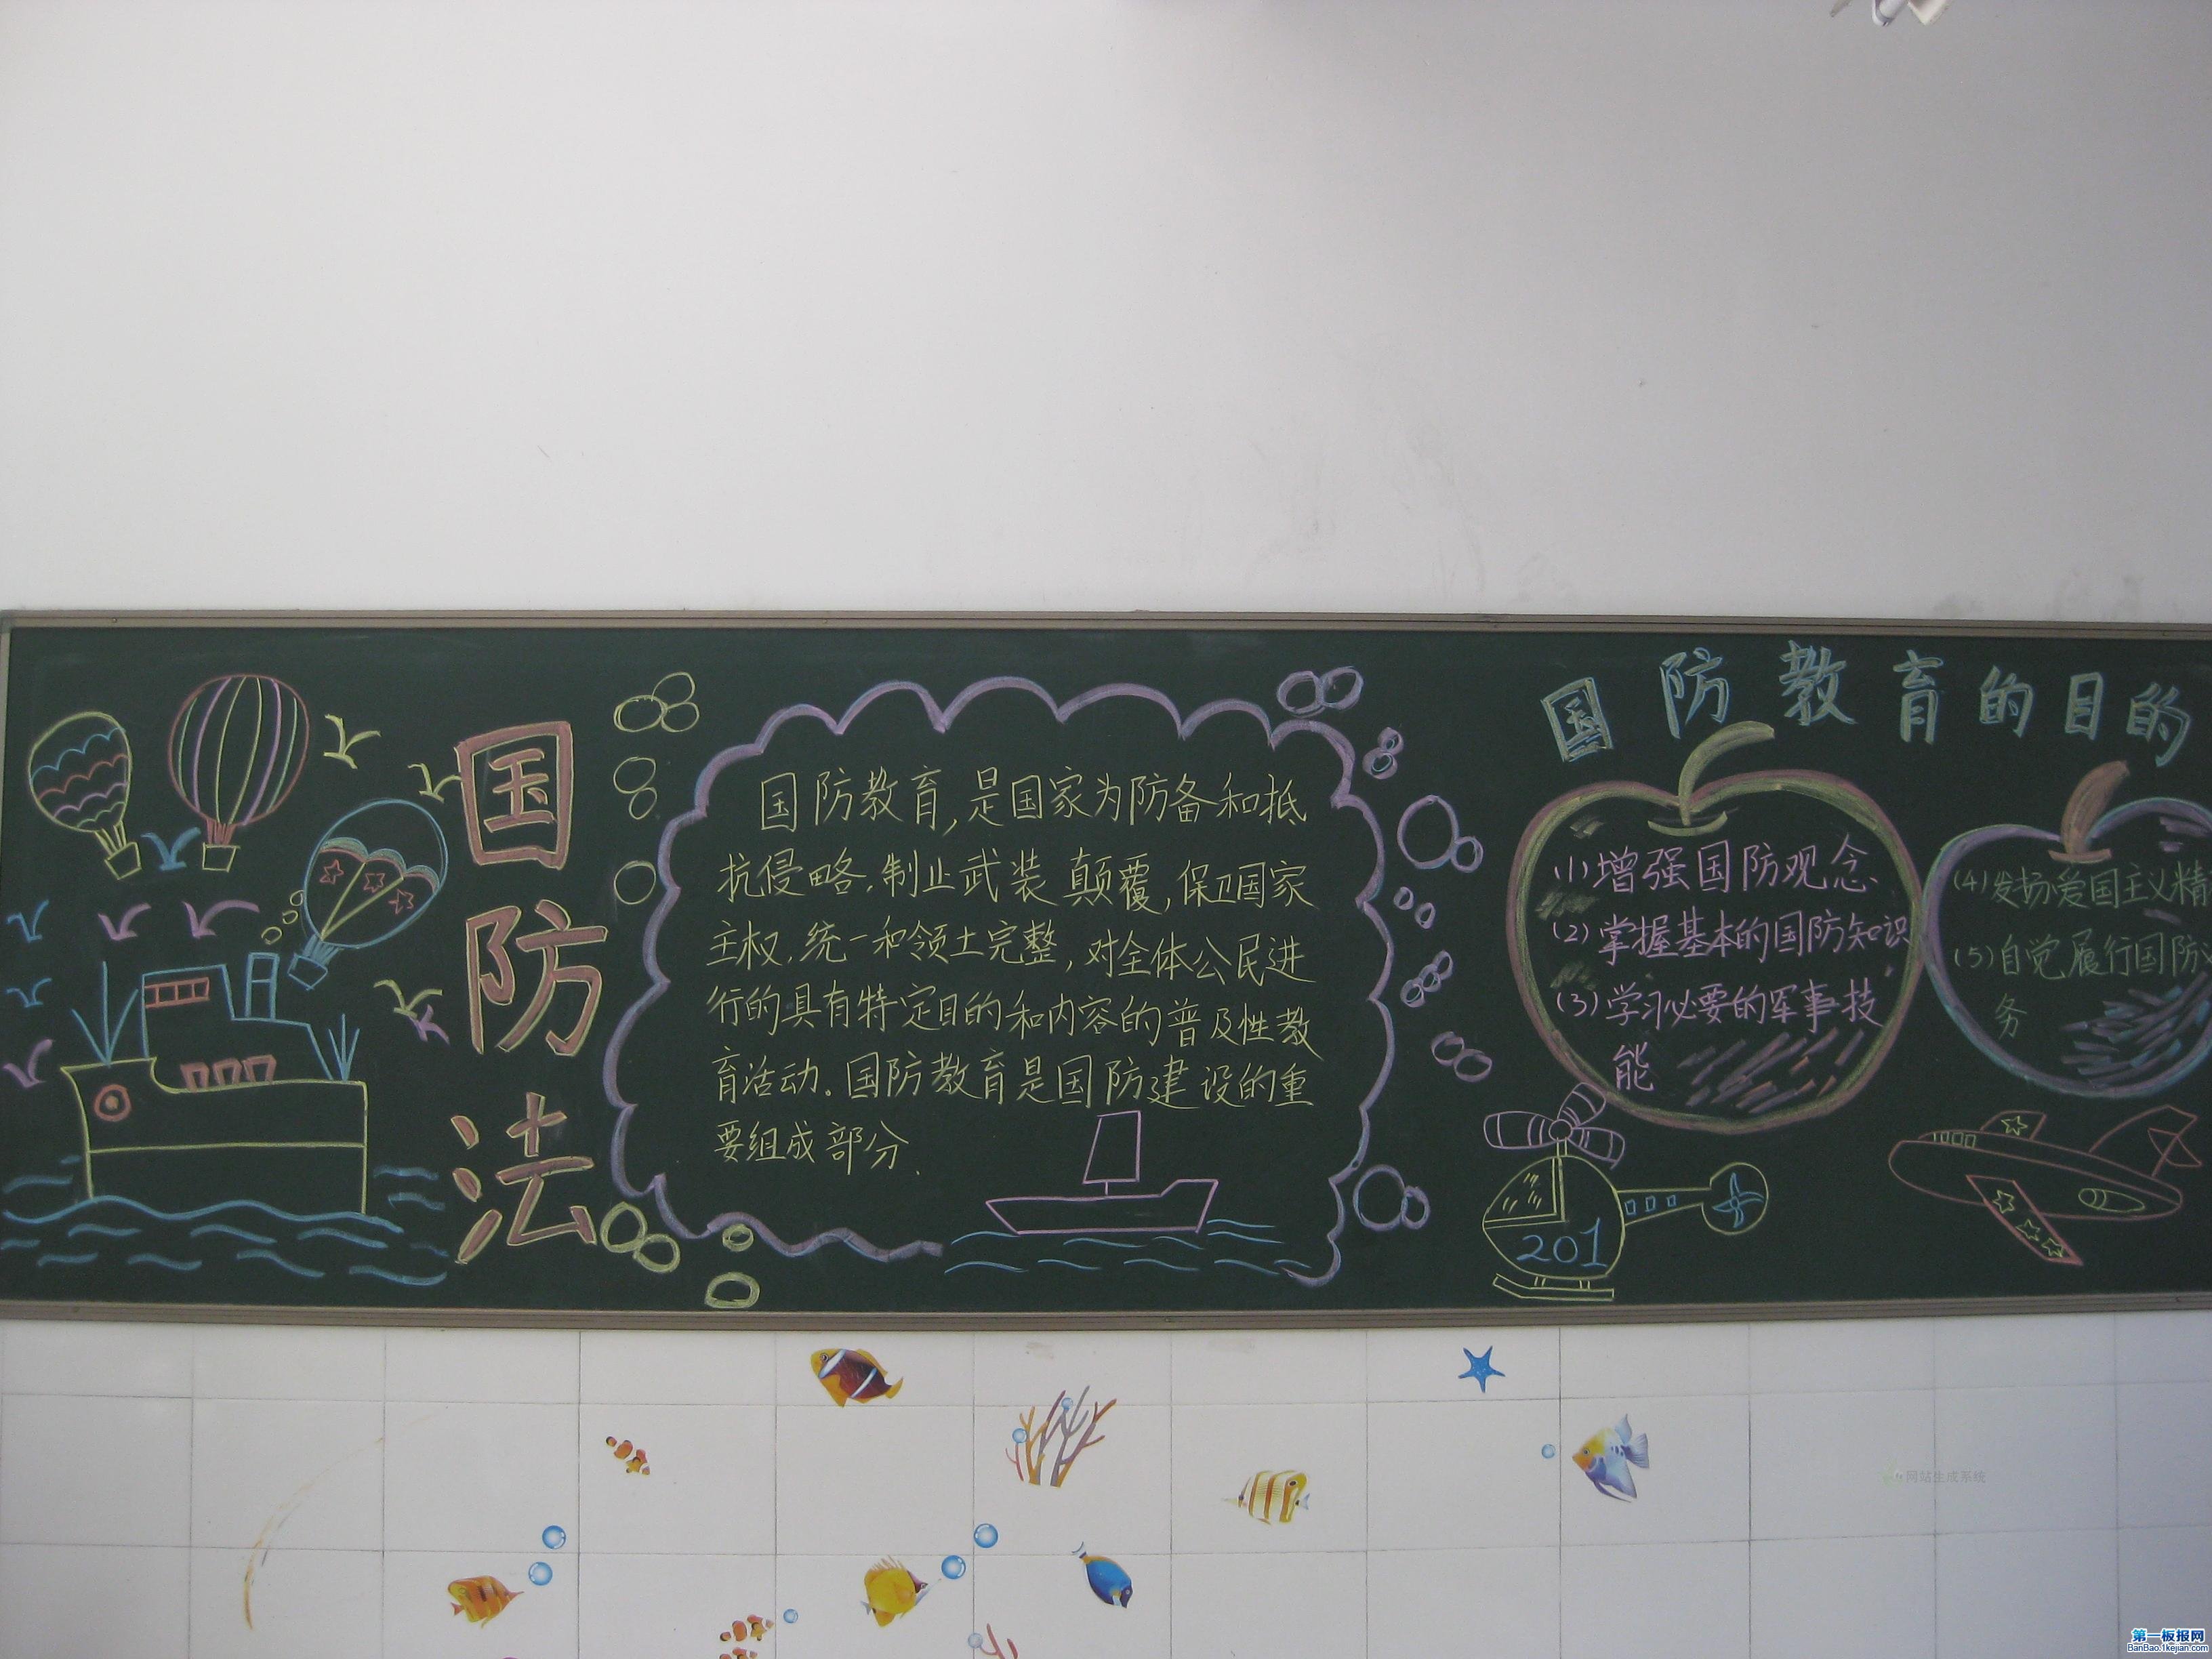 国防法
国防教育,是国家为防备和抵
抗侵略,制止武装颠覆,保卫国家
主权,统一和领土完整,对全体公民进
行的具有特定目的和内容的普及性教
育活动。国防教育是国防建设的重
要组成部分.
国防教育的目的
(1)增强国防观念.
(2)掌握基本的国防知识
(3)学习必要的军事技
能
(4)发扬爱国主义精
(5)自觉履行国防
务
201
网站生成系统
第一板报网
BanBao.1kejian.com